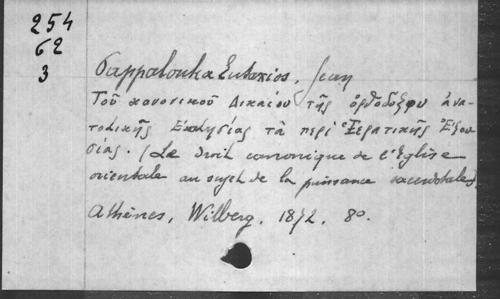 254
62
3
Pappalouka Eutaxios, Jean
Τοῦ κανονικοῦ Δικαίου τῆς ὀρθοδόξου ἀνα-
τολικῆς Ἐκκλησίας τὰ περὶ Ἱερατικῆς Ἐξου-
σίας. (Le Droit canonique de l'Eglise
orientale au sujet de la puissance sacerdotale)
Athènes, Wilberg, 1872, 8o.